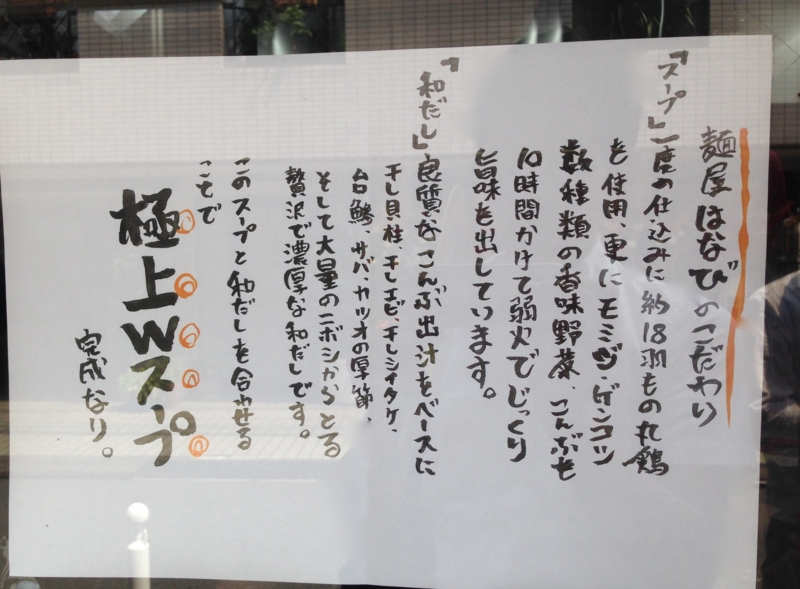 麺屋はなびのこだわり
「スープ」一度の仕込みに約18羽もの丸鶏
を使用、更にモミジ・ゲンコツ
数種類の香味野菜、こんぶを
10時間かけて弱火でじっくり
旨味を出しています。
「和だし」良質なこんぶ出汁をベースに
干し貝柱、干しエビ、干しシイタケ、
台鯛、サバ、カツオの厚節、
そして大量のニボシからとる
贅沢で濃厚な和だしです。
このスープと和だしを合わせる
ことで
極上Wスープ
完成なり。